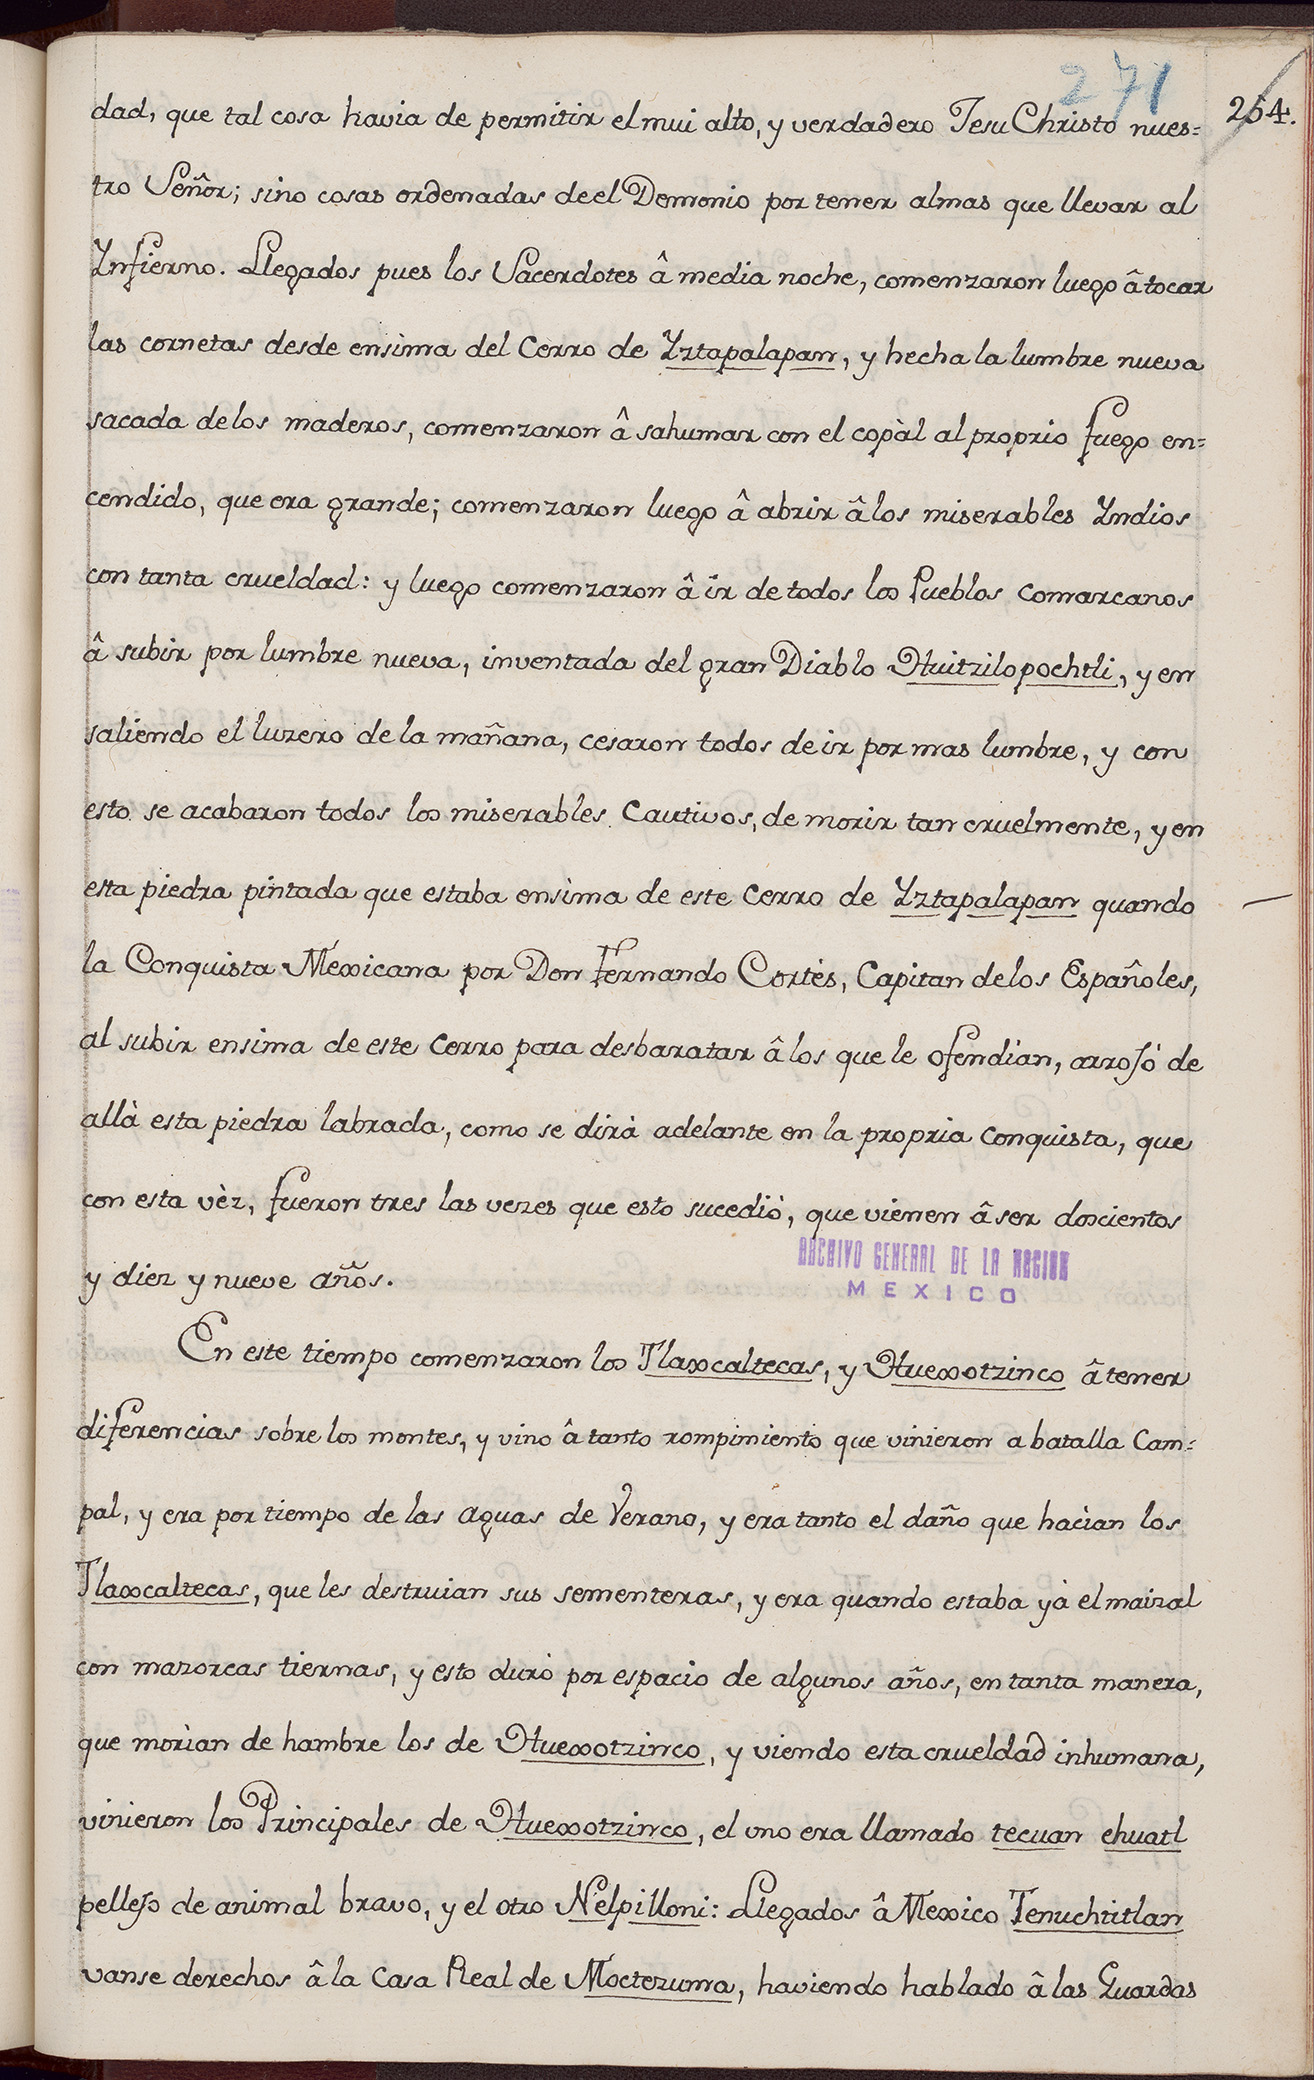 271
254.
dad, que tal cosa havia de permitir el mui alto, y verdadero Jesu Christo nues=
tro Señor; sino cosas ordenadas de el Demonio por tener almas que llevar al
Ynfierno. Llegados pues los Sacerdotes â media noche, comenzaron luego â tocar
las cornetas desde ensima del Cerro de Yztapalapan, y hecha la lumbre nueva
sacada de los maderos, comenzaron â sahumar con el copàl al proprio fuego en=
cendido, que era grande; comenzaron luego â abrir â los miserables Yndios
con tanta crueldad: y luego comenzaron â ir de todos los Pueblos comarcanos
â subir por lumbre nueva, inventada del gran Diablo Huitzilopochtli, y en
saliendo el luzero de la mañana, cesaron todos de ir por mas lumbre, y con
esto se acabaron todos los miserables Cautivos, de morir tan cruelmente, y en
esta piedra pintada que estaba ensima de este Cerro de Yztapalapan quando
la Conquista Mexicana por Don Fernando Cortès, Capitan de los Españoles,
al subir ensima de este Cerro para desbaratar â los que le ofendian, arrojó de
allà esta piedra labrada, como se dirà adelante en la propria conquista, que
con esta vèz, fueron tres las vezes que esto sucediò, que vienen â ser doscientos
y diez y nueve años.
ARCHIVO GENERAL DE LA NACION
MEXICO
En este tiempo comenzaron los Tlaxcaltecas, y Huexotzinco â tener
diferencias sobre los montes, y vino â tanto rompimiento que vinieron a batalla Cam=
pal, y era por tiempo de las aguas de Verano, y era tanto el daño que hacian los
Tlaxcaltecas, que les destruian sus sementeras, y era quando estaba yà el maizal
con mazorcas tiernas, y esto durò por espacio de algunos años, en tanta manera,
que morian de hambre los de Huexotzinco, y viendo esta crueldad inhumana,
vinieron los Principales de Huexotzinco, el uno era llamado tecuan ehuatl
pellejo de animal bravo, y el otro Nelpilloni: Llegados â Mexico Tenuchtitlan
vanse derechos â la Casa Real de Moctezuma, haviendo hablado â las Guardas